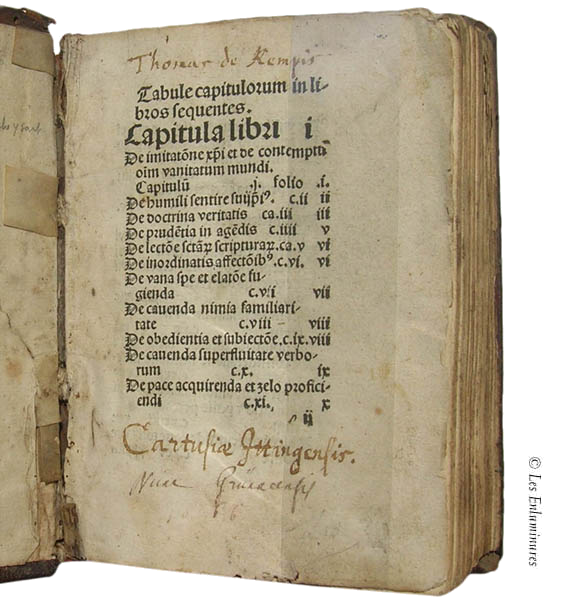 Thomas de Kempis
Tabule capitulorum in li-
bros sequentes.
Capitula libri i
De imitatōne xp̄i et de contemptu
oīm vanitatum mundi.
Capitulū .j. folio .i.
De humili sentire suijp̄iꝰ. c.ii ii
De doctrina veritatis ca.iii iii
De prudētia in agēdis c.iiii v
De lectōe sctāꝝ scripturaꝝ.ca.v vi
De inordinatis affectōibꝰ.c.vi. vi
De vana spe et elatōe fu-
gienda c.vii vii
De cauenda nimia familiari-
tate c.viii viii
De obedientia et subiectōe.c.ix.viii
De cauenda superfluitate verbo-
rum c.x. ix
De pace acquirenda et zelo profici-
endi c.xi. x
ij
Cartusiæ Ittingensis.
Nunc
© Les Enluminures